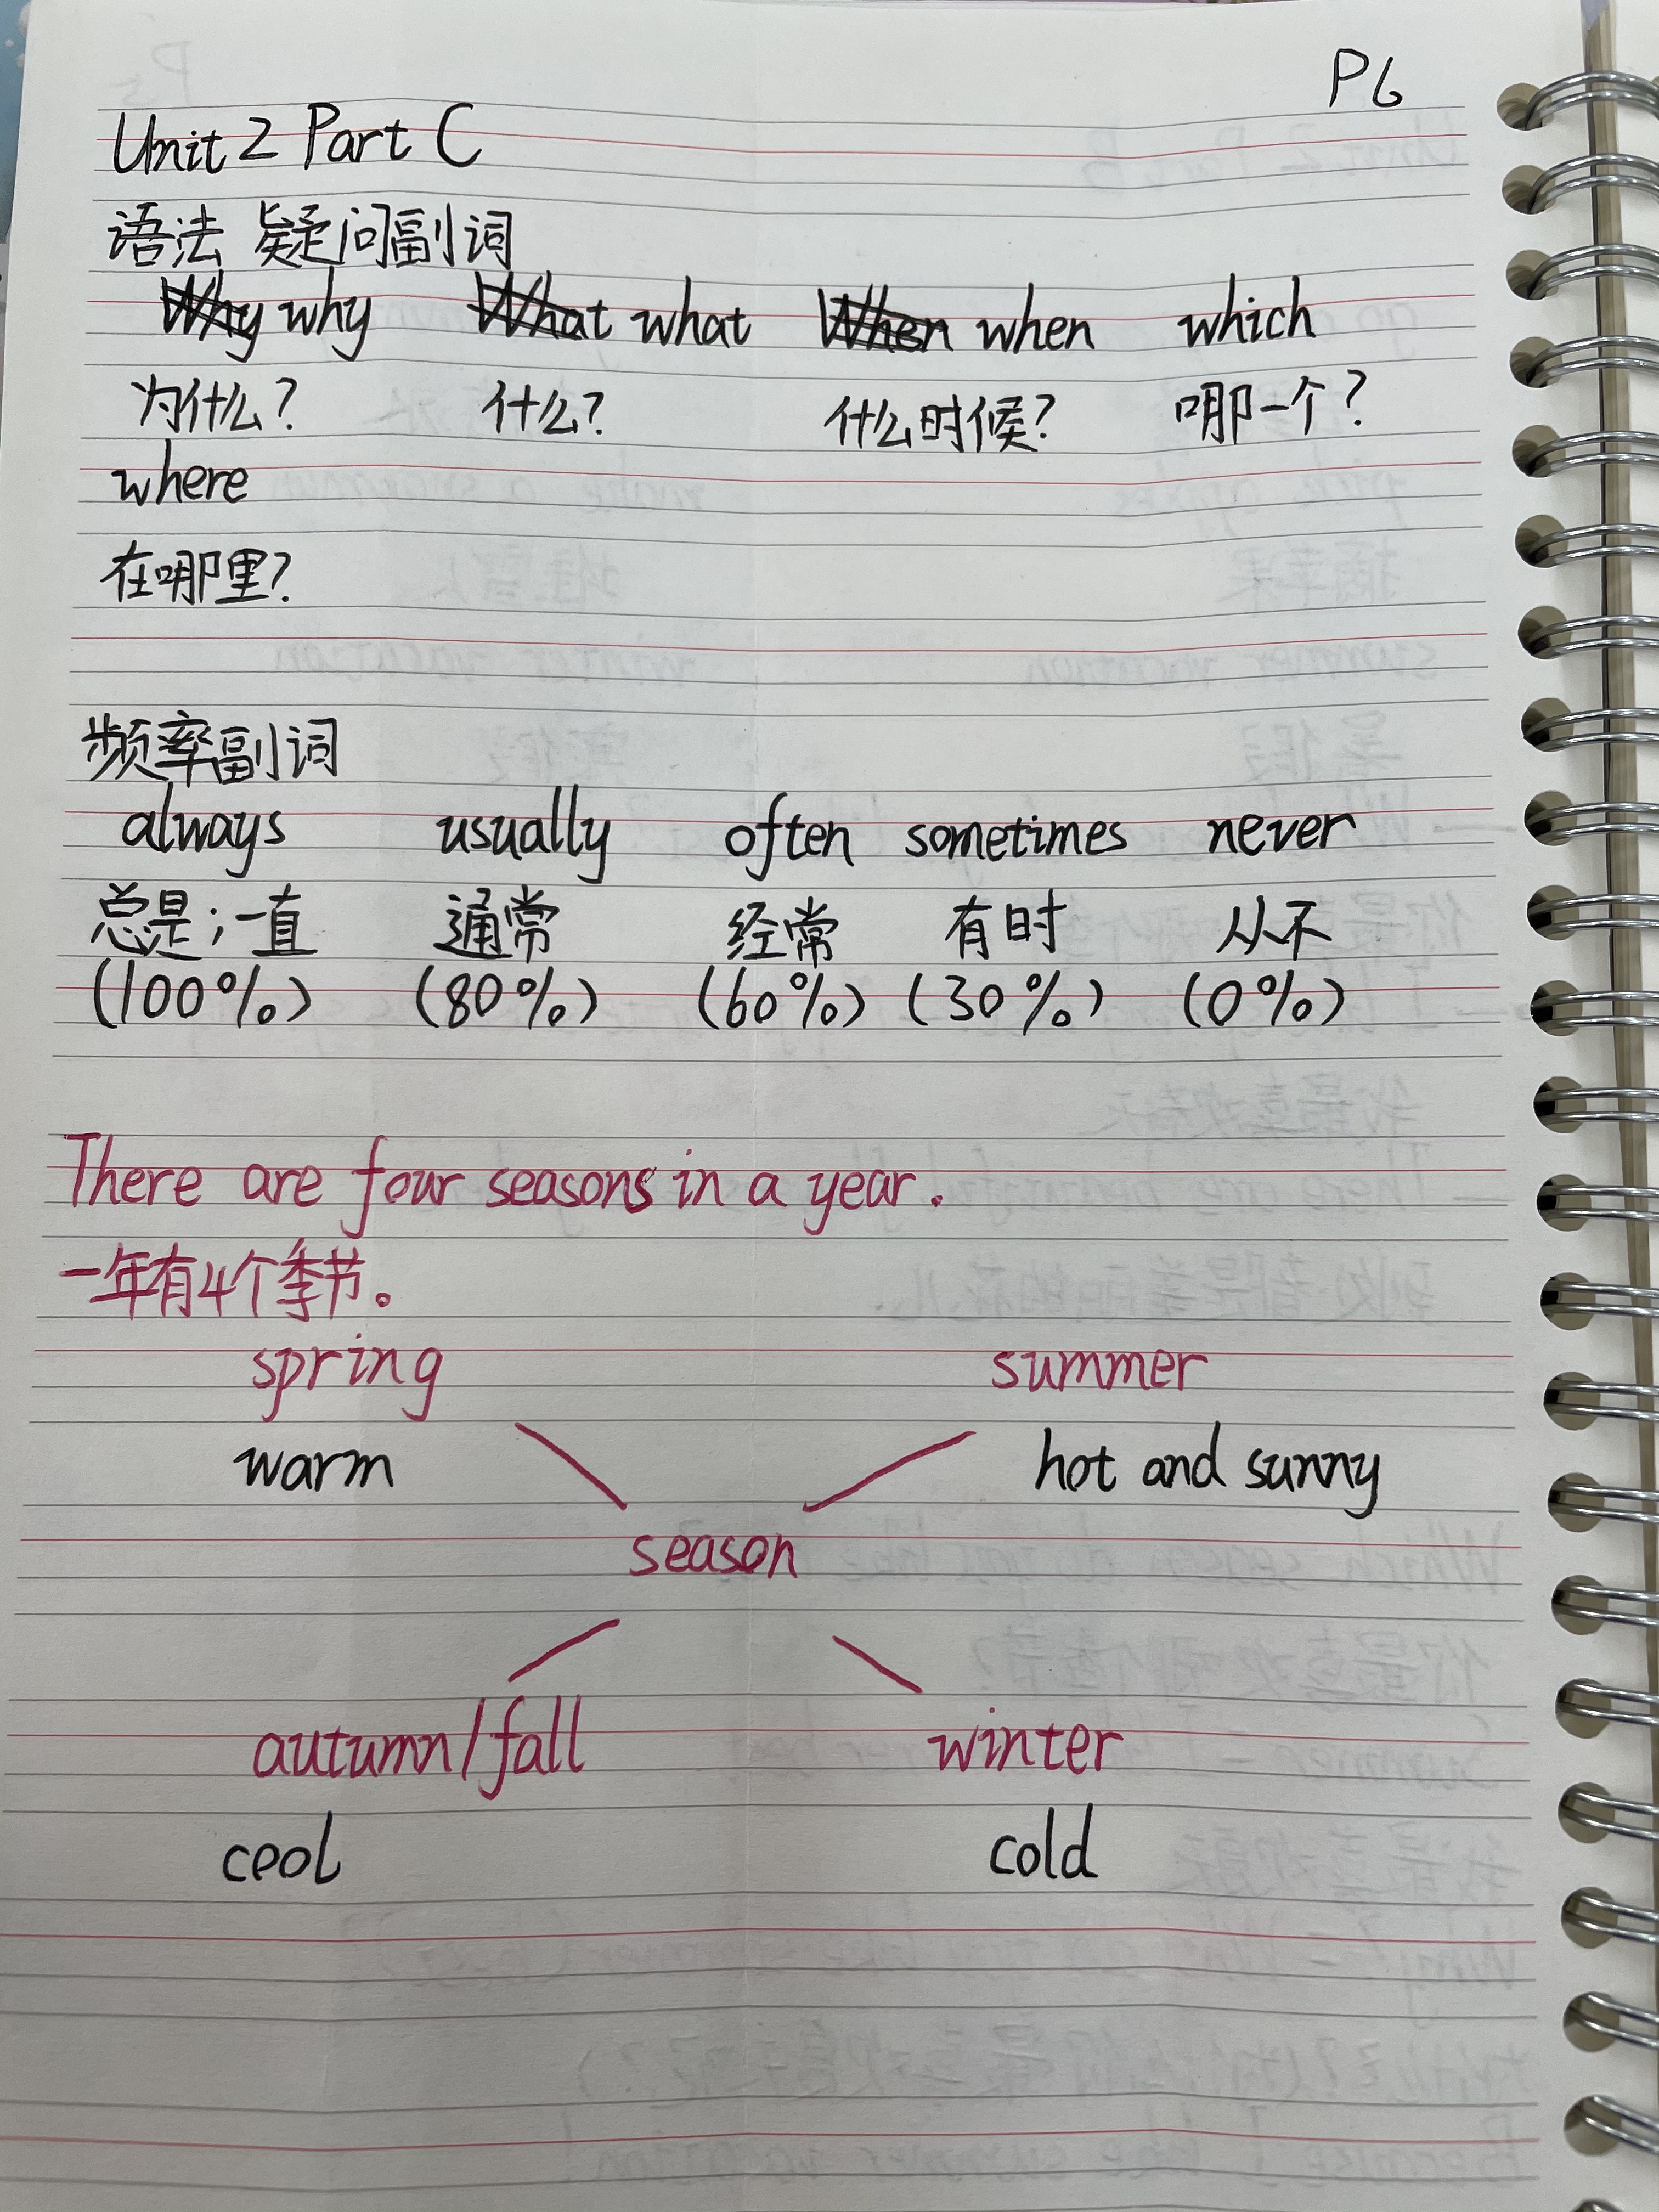 P6
Unit 2 Part C
语法 疑问副词
Why why What what When when which
为什么? 什么? 什么时候? 哪一个?
where
在哪里?
频率副词
always usually often sometimes never
总是;一直 通常 经常 有时 从不
(100%) (80%) (60%) (30%) (0%)
There are four seasons in a year.
一年有4个季节。
spring summer
warm hot and sunny
season
autumn/fall winter
cool cold